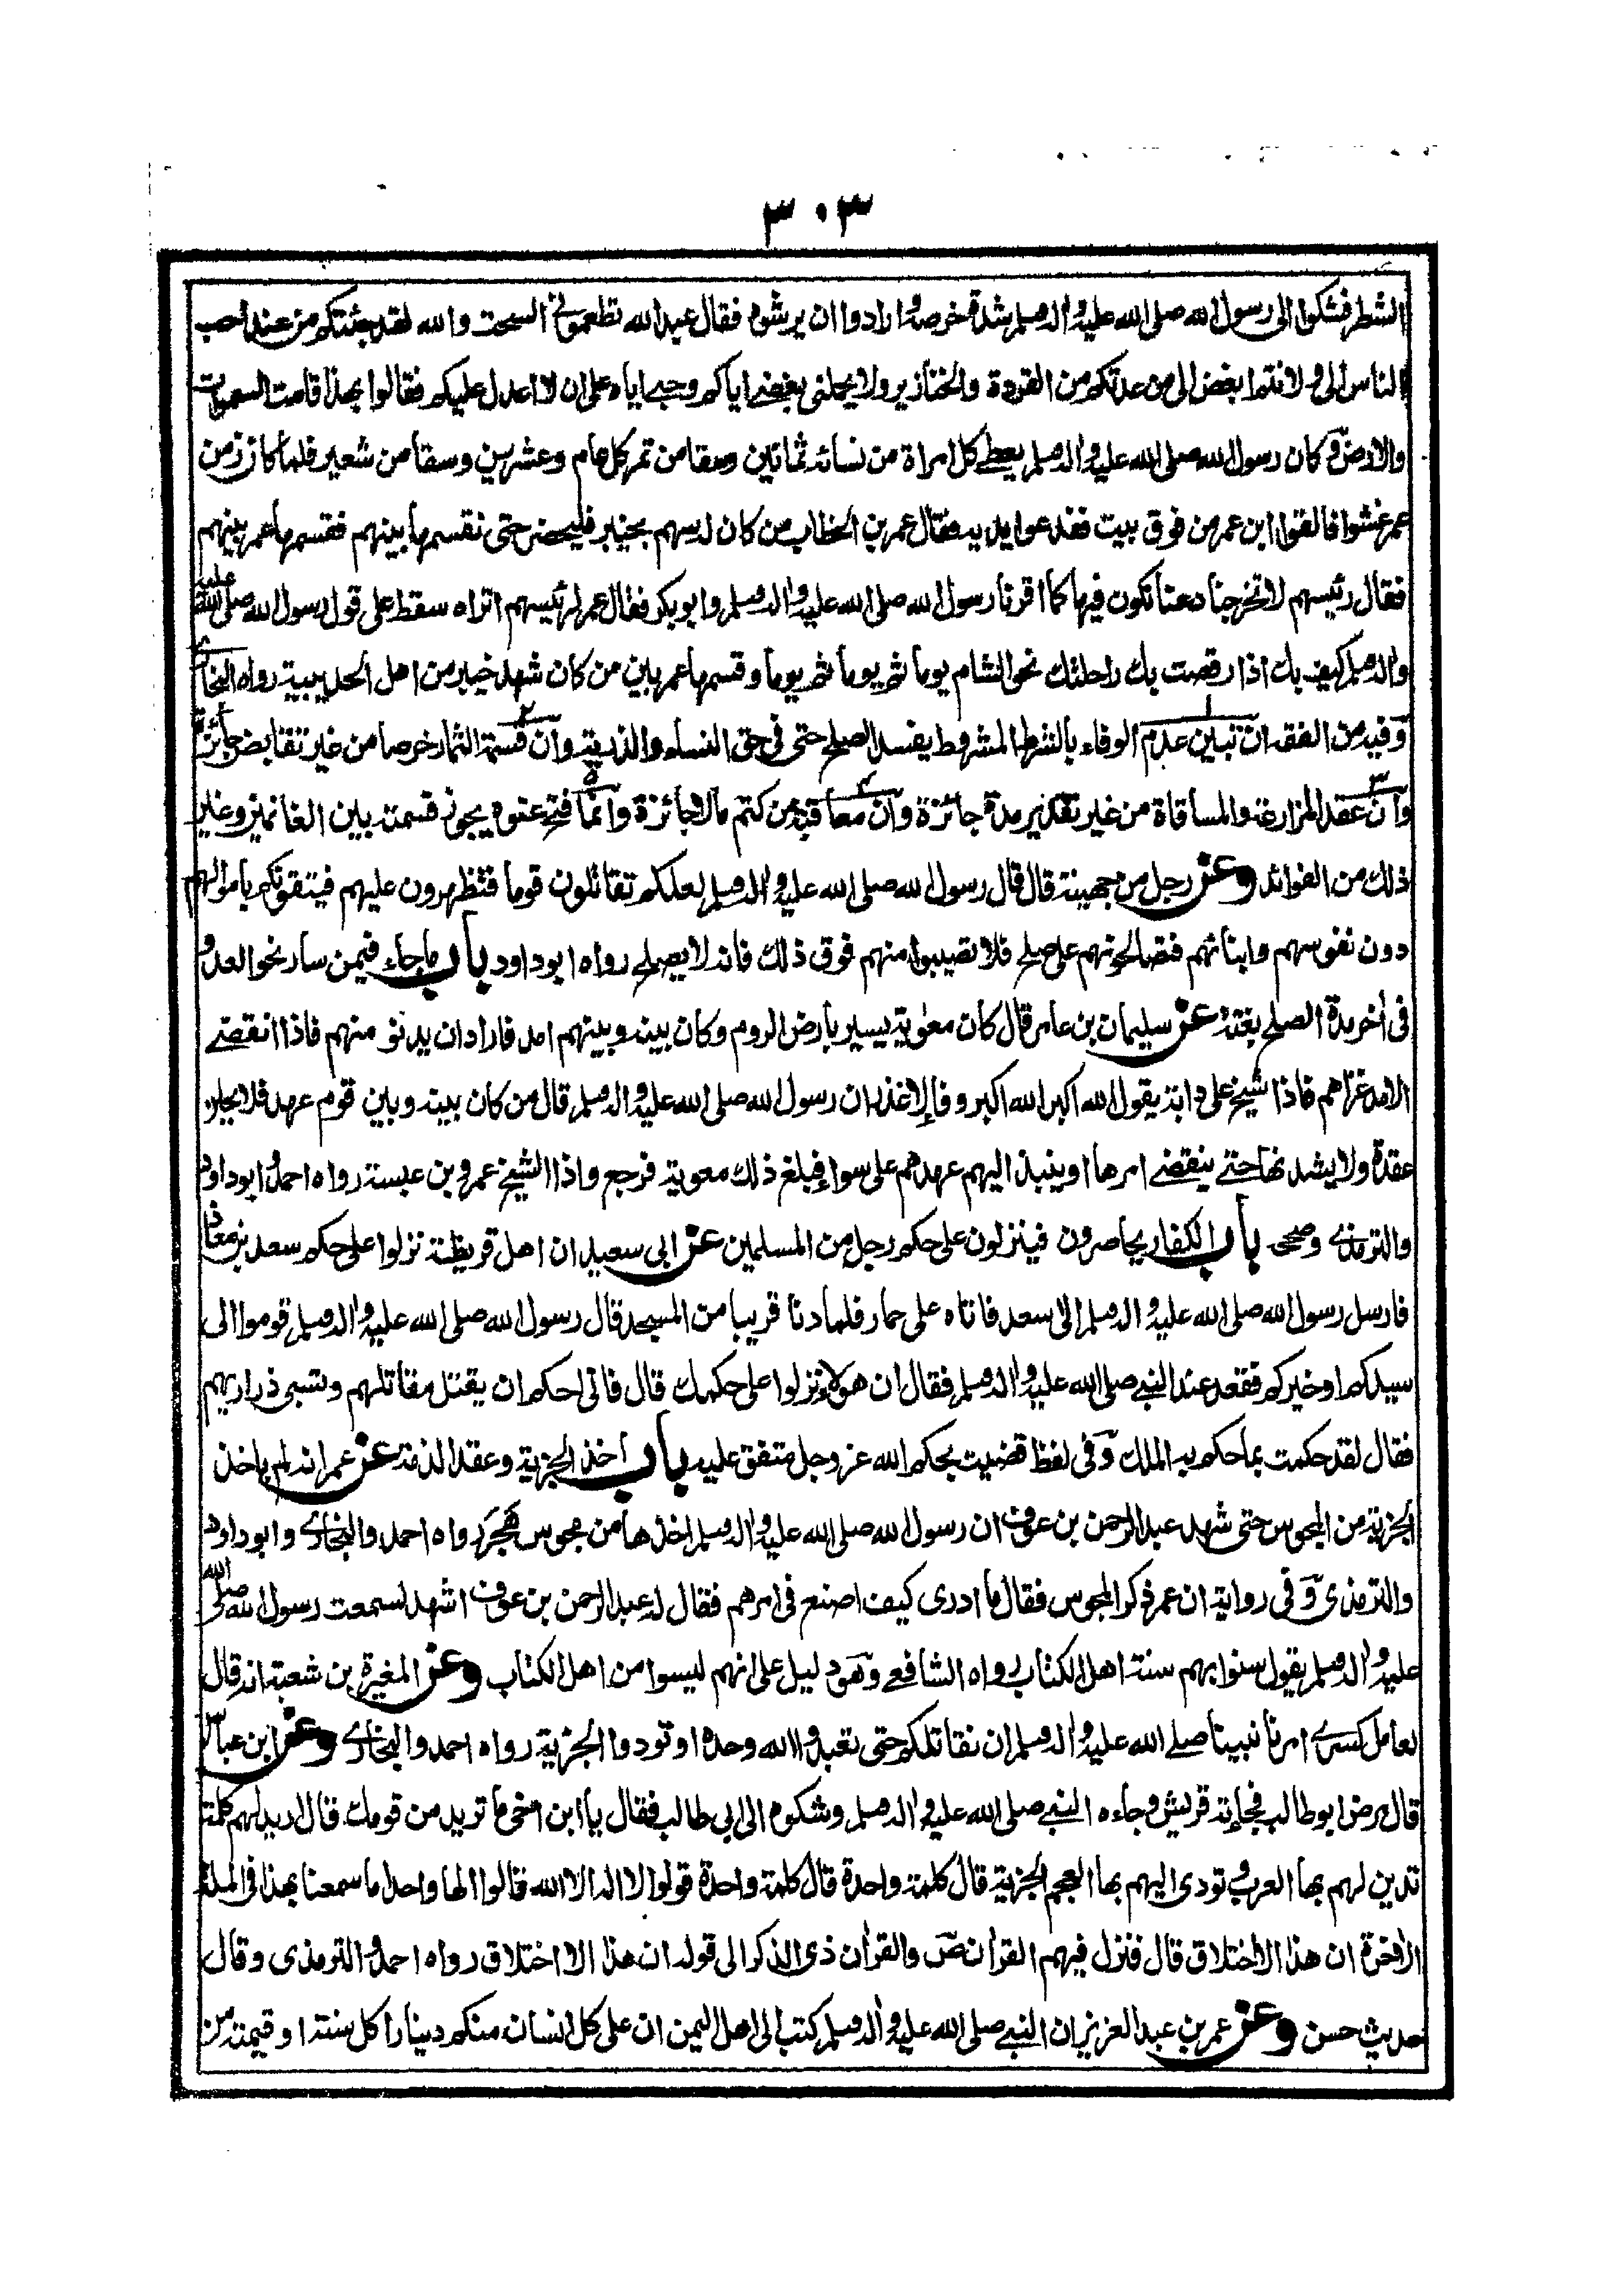 ٣٠٣
الشطر فشكوا الى رسول الله صلى الله عليه واله وسلم شدة خرصه وارادوا ان يرشوه فقال عبد الله تطعموني السحت والله لقد جئتكم من عند احب
الناس الى ولانتم ابغض الى من عدتكم من القردة والخنازير ولا يحملنى بغضے اياكم وحبے اياه على ان لا اعدل عليكم فقالوا بهذا قامت السموات
والارض وكان رسول الله صلى الله عليه واله وسلم يعطے كل امراة من نسائه ثمانين وسقا من تمر كل عام وعشرين وسقا من شعير فلما كان زمن
عمر غشوا فالقوا ابن عمر من فوق بيت ففدعوا يديه فقال عمر بن الخطاب من كان له سهم بخيبر فليحضر حتى نقسمها بينهم فقسمها عمر بينهم
فقال رئيسهم لا تخرجنا دعنا نكون فيها كما اقرنا رسول الله صلى الله عليه واله وسلم وابو بكر فقال عمر لرئيسهم اتراه سقط على قول رسول الله صلى الله عليه
واله وسلم كيف بك اذا رقصت بك راحلتك نحو الشام يوما ثم يوما ثم يوما وقسمها عمر بين من كان شهد خيبر من اهل الحديبية رواه البخارى
وفيه من الفقه ان تبين عدم الوفاء بالشرط المشروط يفسد الصلح حتى فى حق النساء والذرية وان قسمة الثمار خرصا من غير تقابض جائزة
وان عقد المزارعة والمساقاة من غير تقدير مدة جائزة وان معاقبة من كتم مالا جائزة وانما فتح عنوة يجوز قسمته بين الغانمين وغير
ذلك من الفوائد وعن رجل من جهينة قال قال رسول الله صلى الله عليه واله وسلم لعلكم تقاتلون قوما فتظهرون عليهم فيتقونكم باموالهم
دون نفوسهم وابنائهم فتصالحونهم على صلح فلا تصيبوا منهم فوق ذلك فانه لا يصلح رواه ابو داود باب ما جاء فيمن سار نحو العدو
فى اخر مدة الصلح بغتة عن سليمان بن عامر قال كان معوية يسير بارض الروم وكان بينه وبينهم امد فاراد ان يدنو منهم فاذا انقضے
الامد غزاهم فاذا شيخ على دابة يقول الله اكبر الله اكبر وفاء لا غدر ان رسول الله صلى الله عليه واله وسلم قال من كان بينه وبين قوم عهد فلا يحلن
عقدة ولا يشدنها حتے ينقضے امرها او ينبذ اليهم عهدهم على سواء فبلغ ذلك معوية فرجع واذا الشيخ عمرو بن عبسة رواه احمد وابو داود
والترمذے وصححه باب الكفار يحاصرون فينزلون على حكم رجل من المسلمين عن ابى سعيد ان اهل قريظة نزلوا على حكم سعد بن معاذ
فارسل رسول الله صلى الله عليه واله وسلم الى سعد فاتاه على حمار فلما دنا قريبا من المسجد قال رسول الله صلى الله عليه واله وسلم قوموا الى
سيدكم او خيركم فقعد عند النبے صلى الله عليه واله وسلم فقال ان هولاء نزلوا على حكمك قال فانى احكم ان يقتل مقاتلهم وتسبى ذراريهم
فقال لقد حكمت بما حكم به الملك وفى لفظ قضيت بحكم الله عز وجل متفق عليه باب اخذ الجزية وعقد الذمة عن عمر انه لم ياخذ
الجزية من المجوس حتى شهد عبد الرحمن بن عوف ان رسول الله صلى الله عليه واله وسلم اخذها من مجوس هجر رواه احمد والبخارى وابو داود
والترمذى وفى رواية ان عمر ذكر المجوس فقال ما ادرى كيف اصنع فى امرهم فقال له عبد الرحمن بن عوف اشهد لسمعت رسول الله صلى الله
عليه واله وسلم يقول سنوا بهم سنة اهل الكتاب رواه الشافعے وهو دليل على انهم ليسوا من اهل الكتاب وعن المغيرة بن شعبة انه قال
لعامل كسرے امرنا نبينا صلے الله عليه واله وسلم ان نقاتلكم حتى تعبدوا الله وحده او تودوا الجزية رواه احمد والبخارے وعن ابن عباس
قال مرض ابو طالب فجاءته قريش وجاءه النبے صلى الله عليه واله وسلم وشكوه الى ابى طالب فقال يا ابن اخى ما تريد من قومك قال اريد لهم كلمة
تدين لهم بها العرب وتودى اليهم بها العجم الجزية قال كلمة واحدة قال كلمة واحدة قولوا لا اله الا الله فقالوا الها واحدا ما سمعنا بهذا فى الملة
الاخرة ان هذا الا اختلاق قال فنزل فيهم القران ص والقران ذى الذكر الى قوله ان هذا الا اختلاق رواه احمد والترمذى وقال
حديث حسن وعن عمر بن عبد العزيز ان النبے صلى الله عليه واله وسلم كتب الى اهل اليمن ان على كل انسان منكم دينارا كل سنة او قيمته من